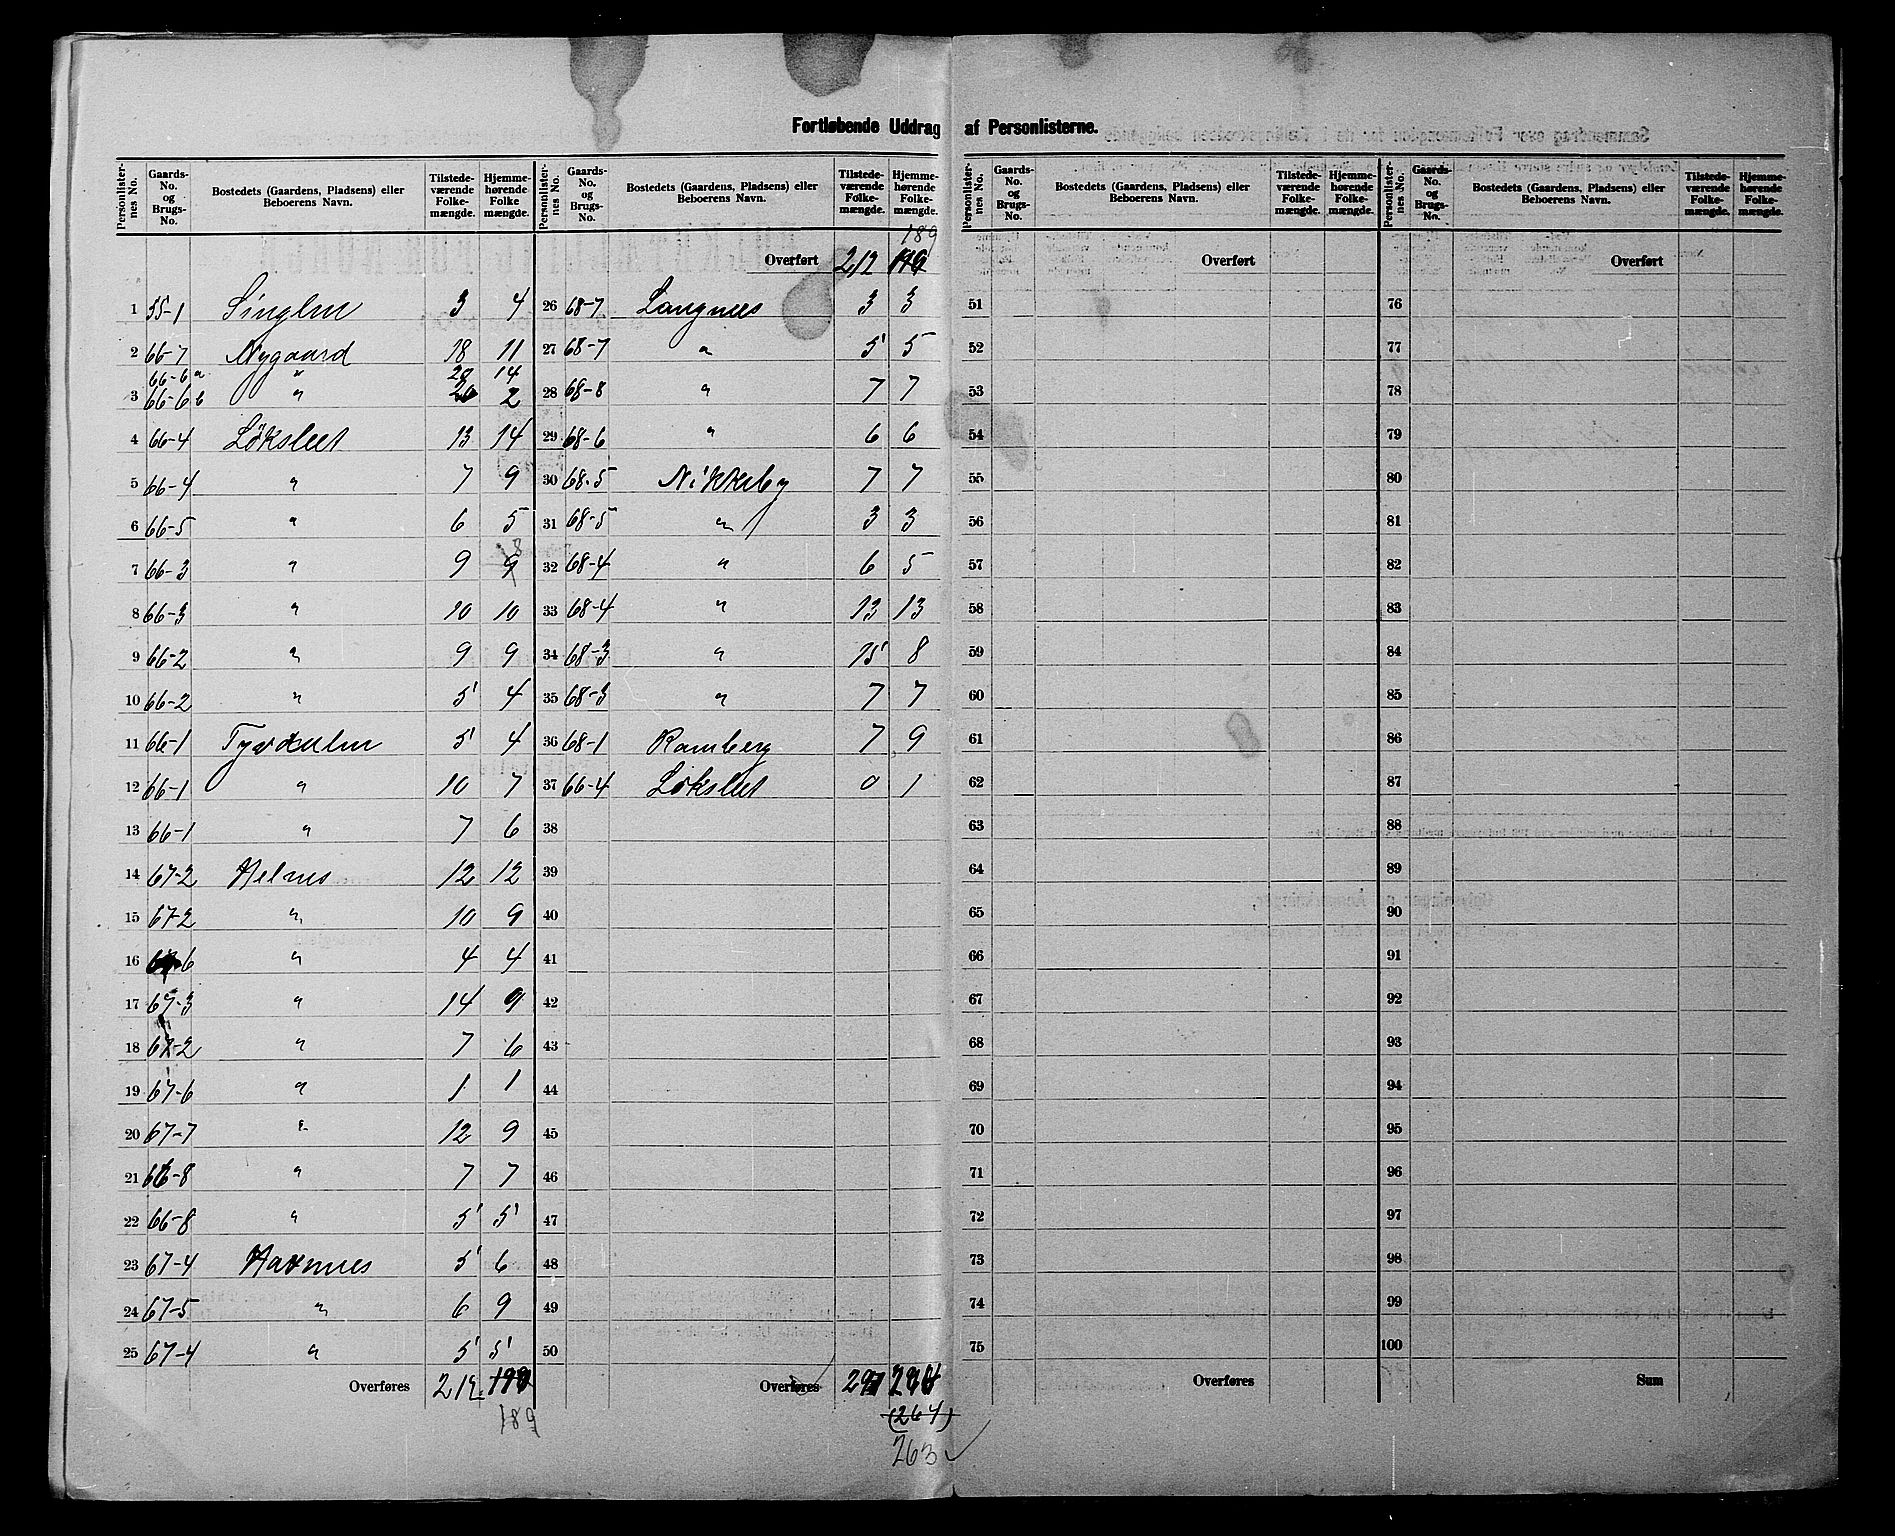 Fortløbende Uddrag af Personlisterne.
Personlister-nes No. Gaards-No. og Brugs-No. Bostedets (Gaardens, Pladsens) eller Beboerens Navn. Tilstede-værende Folke-mængde. Hjemme-hørende Folke mængde.
Personlister-nes No. Gaards-No. og Brugs-No. Bostedets (Gaardens, Pladsens) eller Beboerens Navn. Tilstede-værende Folke-mængde. Hjemme-hørende Folke-mængde.
Personlister-nes No. Gaards-No. og Brugs-No. Bostedets (Gaardens, Pladsens) eller Beboerens Navn. Tilstede-værende Folke-mængde. Hjemme-hørende Folke-mængde.
Personlister-nes No. Gaards-No. og Brugs-No. Bostedets (Gaardens, Pladsens) eller Beboerens Navn. Tilstede-værende Folke-mængde. Hjemme-hørende Folke-mængde.
1 55-1 Singlen 3 4
2 66-7 Nygaard 18 11
66-6 a " 14
3 66-6 b " 2
4 66-4 Løkslett 13 14
5 66-4 " 7 9
6 66-5 " 6 5
7 66-3 " 9 9 8
8 66-3 " 10 10
9 66-2 " 9 9
10 66-2 " 5 4
11 66-1 5 4
12 66-1 " 10 7
13 66-1 " 7 6
14 67-2 Helnes 12 12
15 67-2 " 10 9
16 " 4 4
17 67-3 " 14 9
18 67-2 " 7 6
19 67-6 " 1 1
20 67-7 " 12 9
21 66-8 " 7 7
22 66-8 " 5 5
23 67-4 Havnnes 5 6
24 67-5 " 6 9
25 67-4 " 5 5
Overføres 212 190
189
189
Overført 212
26 68-7 Langnes 3 3
27 68-7 " 5 5
28 68-8 " 7 7
29 68-6 " 6 6
30 68-5 Nikkeby 7 7
31 68-5 " 3 3
32 68-4 " 6 5
33 68-4 " 13 13
34 68-3 " 15 8
35 68-3 " 7 7
36 68-1 Ramberg 7 9
37 66-4 Løkslett 0 1
38
39
40
41
42
43
44
45
46
47
48
49
50
Overføres
(264)
263
Overført
51
52
53
54
55
56
57
58
59
60
61
62
63
64
65
66
67
68
69
70
71
72
73
74
75
Overføres
Overført
76
77
78
79
80
81
82
83
84
85
86
87
88
89
90
91
92
93
94
95
96
97
98
99
100
Sum